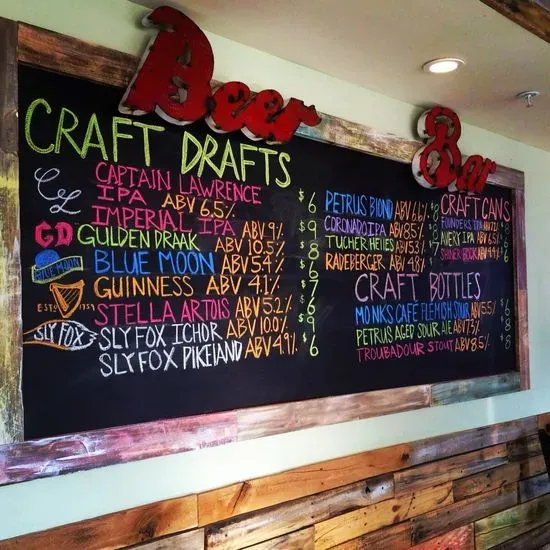 Beer Bar
CRAFT DRAFTS
CL CAPTAIN LAWRENCE
IPA ABV 6.5% $6
IMPERIAL IPA ABV 9% $9
GD GULDEN DRAAK ABV 10.5% $8
BLUE MOON BLUE MOON ABV 5.4% $6
ESTD 1759 GUINNESS ABV 4.1% $7
STELLA ARTOIS ABV 5.2% $6
SLY FOX SLY FOX ICHOR ABV 10.0% $9
SLY FOX PIKELAND ABV 4.9% $6
PETRUS BLOND ABV 6.6% $8
CORONADO IPA ABV 8.5%
TUCHER HEFIES ABV 5.3%
RADEBERGER ABV 4.8%
CRAFT CANS
FOUNDERS IPA
AVERY IPA ABV 6.5%
SHINER BOCK ABV 4.4%
CRAFT BOTTLES
MONKS CAFÉ FLEMISH SOUR ABV 5.5% $6
PETRUS AGED SOUR ALE ABV 7.3% $8
TROUBADOUR STOUT ABV 8.5% $8